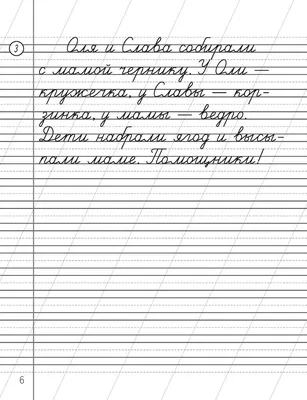 3
Оля и Слава собирали
с мамой чернику. У Оли —
кружечка, у Славы — кор-
зинка, у мамы — ведро.
Дети набрали ягод и высы-
пали маме. Помощники!
6